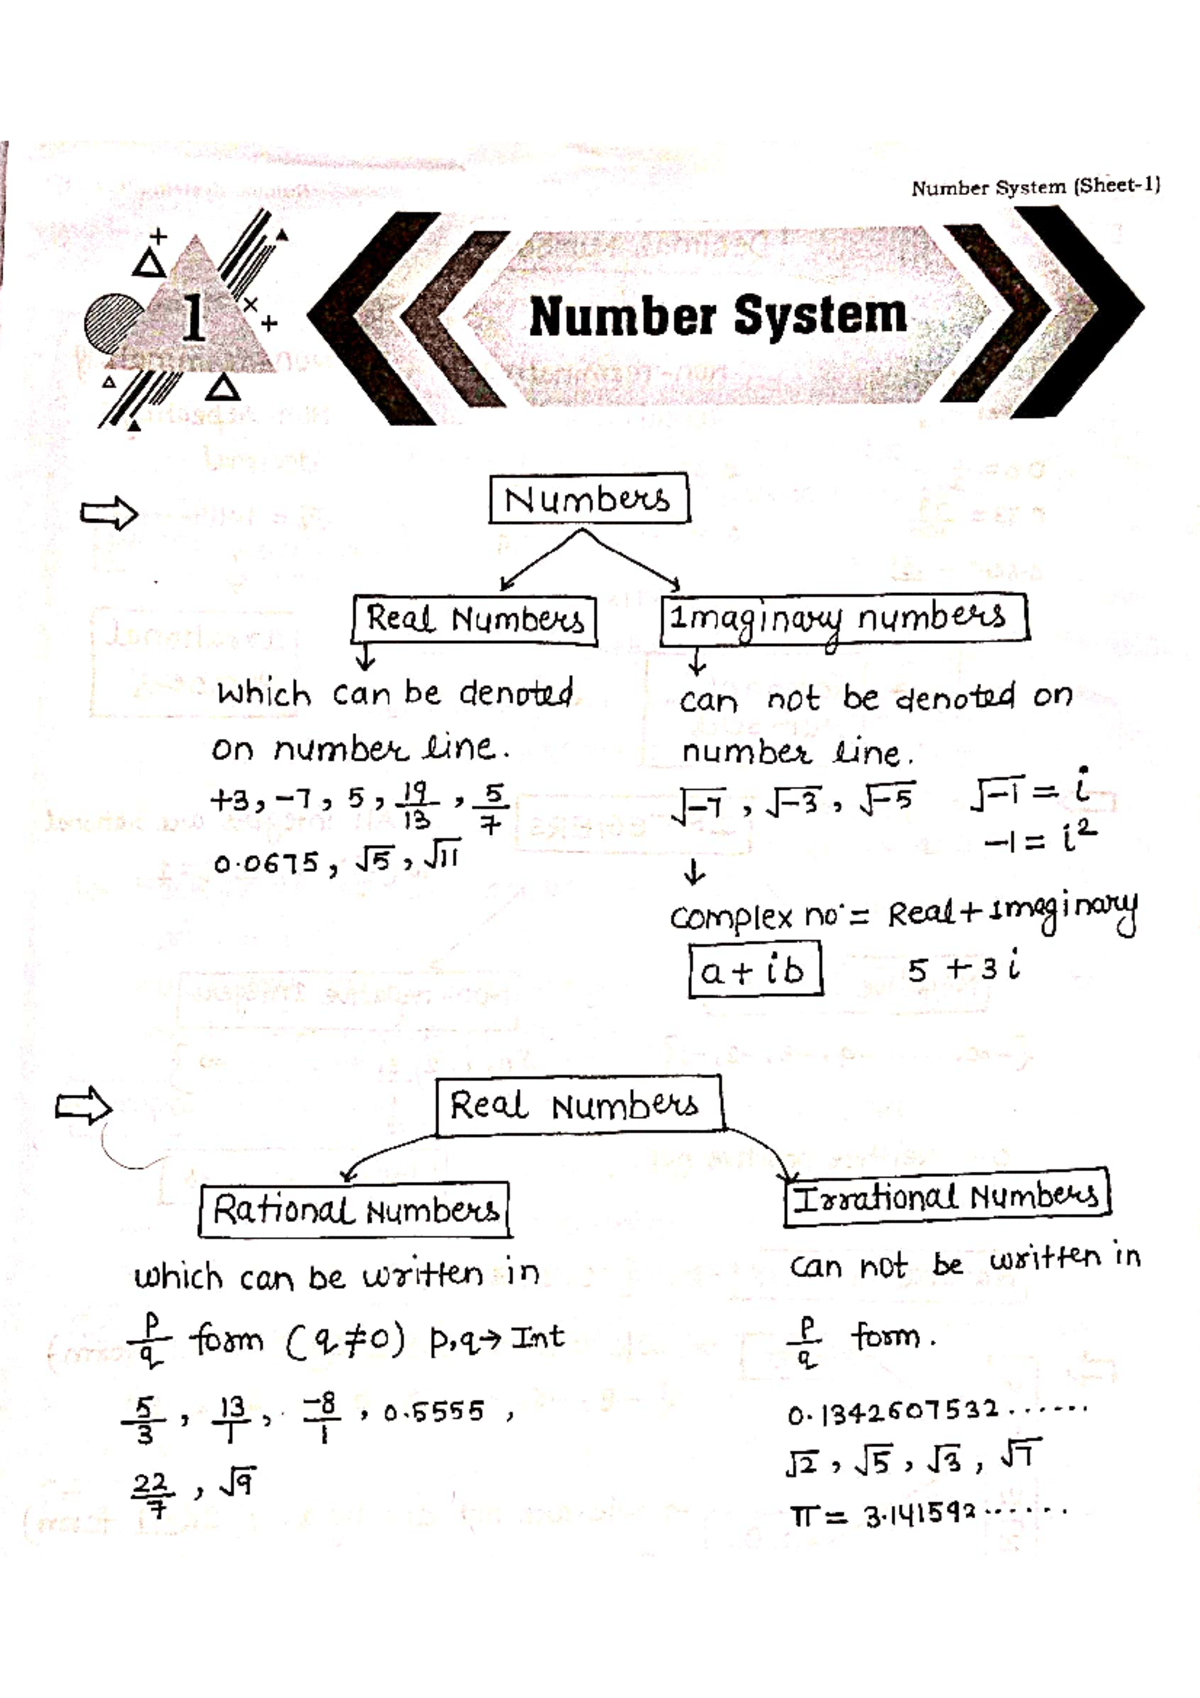 Number System (Sheet-1)
1
Number System
Numbers
Real Numbers
Imaginary numbers
which can be denoted
on number line.
+3, -7, 5, 19/13, 5/7
0.0675, √5, √11
can not be denoted on
number line.
√-7, √-3, √-5 √-1 = i
-1 = i²
complex no. = Real + Imaginary
a + ib 5 + 3i
Real Numbers
Rational Numbers
Irrational Numbers
which can be written in
p/q form (q ≠ 0) p,q → Int
5/3, 13/1, -8/1, 0.5555,
22/7, √9
can not be written in
p/q form.
0.1342607532......
√2, √5, √3, √7
π = 3.141592......